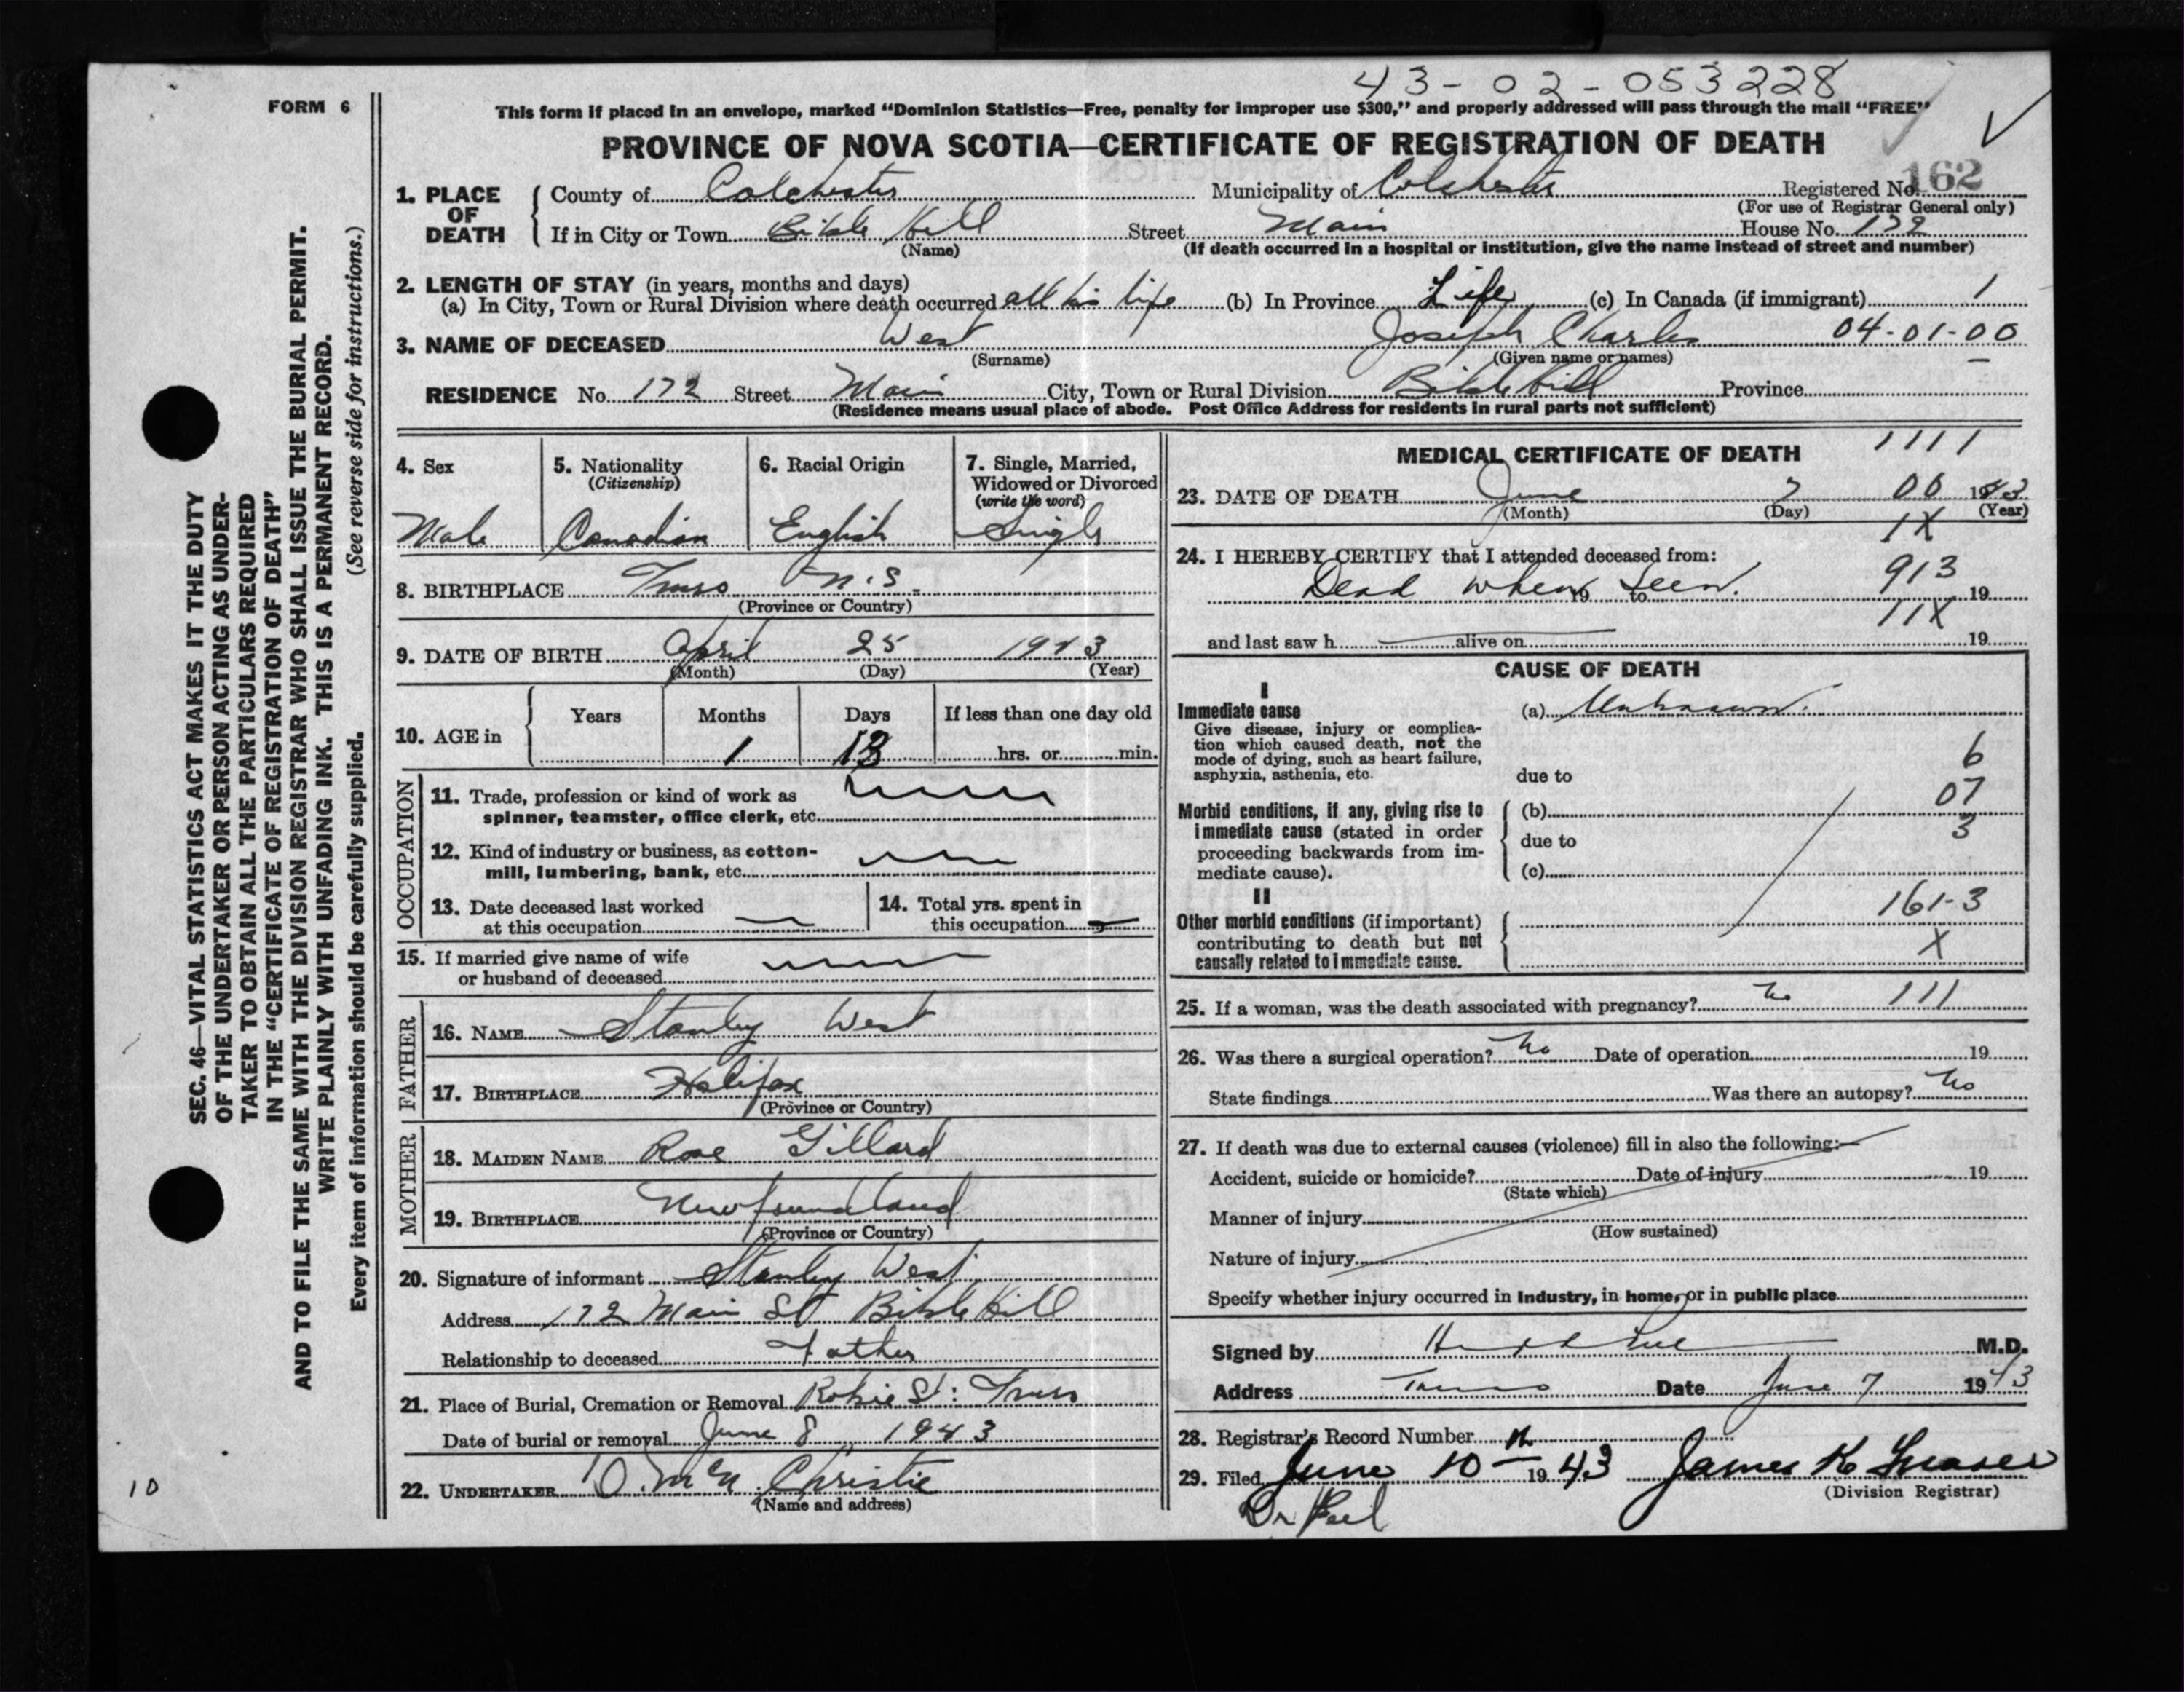 43-02-053228
FORM 6
This form if placed in an envelope, marked “Dominion Statistics—Free, penalty for improper use $300,” and properly addressed will pass through the mail “FREE”
PROVINCE OF NOVA SCOTIA—CERTIFICATE OF REGISTRATION OF DEATH
1. PLACE OF DEATH
County of Colchester Municipality of Colchester Registered No. 162
(For use of Registrar General only)
If in City or Town Bible Hill Street Main House No. 172
(Name) (If death occurred in a hospital or institution, give the name instead of street and number)
2. LENGTH OF STAY (in years, months and days)
(a) In City, Town or Rural Division where death occurred all his life (b) In Province Life (c) In Canada (if immigrant) 1
3. NAME OF DECEASED West Joseph Charles 04-01-00
(Surname) (Given name or names)
RESIDENCE No. 172 Street Main City, Town or Rural Division Bible Hill Province
(Residence means usual place of abode. Post Office Address for residents in rural parts not sufficient)
4. Sex
Male
5. Nationality
(Citizenship)
Canadian
6. Racial Origin
English
7. Single, Married,
Widowed or Divorced
(write the word)
Single
8. BIRTHPLACE Truro N.S.
(Province or Country)
9. DATE OF BIRTH April 25 1943
(Month) (Day) (Year)
10. AGE in
Years Months Days If less than one day old
1 13 hrs. or min.
OCCUPATION
11. Trade, profession or kind of work as
spinner, teamster, office clerk, etc.
12. Kind of industry or business, as cotton-
mill, lumbering, bank, etc.
13. Date deceased last worked
at this occupation
14. Total yrs. spent in
this occupation
15. If married give name of wife
or husband of deceased
FATHER
16. NAME Stanley West
17. BIRTHPLACE Halifax
(Province or Country)
MOTHER
18. MAIDEN NAME Rose Gillard
19. BIRTHPLACE Newfoundland
(Province or Country)
20. Signature of informant Stanley West
Address 172 Main St Bible Hill
Relationship to deceased Father
21. Place of Burial, Cremation or Removal Robie St: Truro
Date of burial or removal June 8 1943
22. UNDERTAKER Christie
(Name and address)
MEDICAL CERTIFICATE OF DEATH 1111
23. DATE OF DEATH June 7 00 1943
(Month) (Day) (Year)
1X
24. I HEREBY CERTIFY that I attended deceased from:
Dead when seen. 913
19 to 19
11X
and last saw h alive on 19
CAUSE OF DEATH
I
Immediate cause
Give disease, injury or complica-
tion which caused death, not the
mode of dying, such as heart failure,
asphyxia, asthenia, etc.
(a) Unknown.
6
due to
07
Morbid conditions, if any, giving rise to
immediate cause (stated in order
proceeding backwards from im-
mediate cause).
(b)
3
due to
(c)
II
161-3
Other morbid conditions (if important)
contributing to death but not
causally related to immediate cause.
X
25. If a woman, was the death associated with pregnancy? no 111
26. Was there a surgical operation? no Date of operation 19
State findings Was there an autopsy? no
27. If death was due to external causes (violence) fill in also the following:—
Accident, suicide or homicide? Date of injury 19
(State which)
Manner of injury
(How sustained)
Nature of injury
Specify whether injury occurred in Industry, in home, or in public place
Signed by M.D.
Address Truro Date June 7 1943
28. Registrar's Record Number
29. Filed June 10 1943 James K Fraser
(Division Registrar)
Dr Peel
SEC. 46—VITAL STATISTICS ACT MAKES IT THE DUTY
OF THE UNDERTAKER OR PERSON ACTING AS UNDER-
TAKER TO OBTAIN ALL THE PARTICULARS REQUIRED
IN THE “CERTIFICATE OF REGISTRATION OF DEATH”
AND TO FILE THE SAME WITH THE DIVISION REGISTRAR WHO SHALL ISSUE THE BURIAL PERMIT.
WRITE PLAINLY WITH UNFADING INK. THIS IS A PERMANENT RECORD.
Every item of information should be carefully supplied. (See reverse side for instructions.)
10